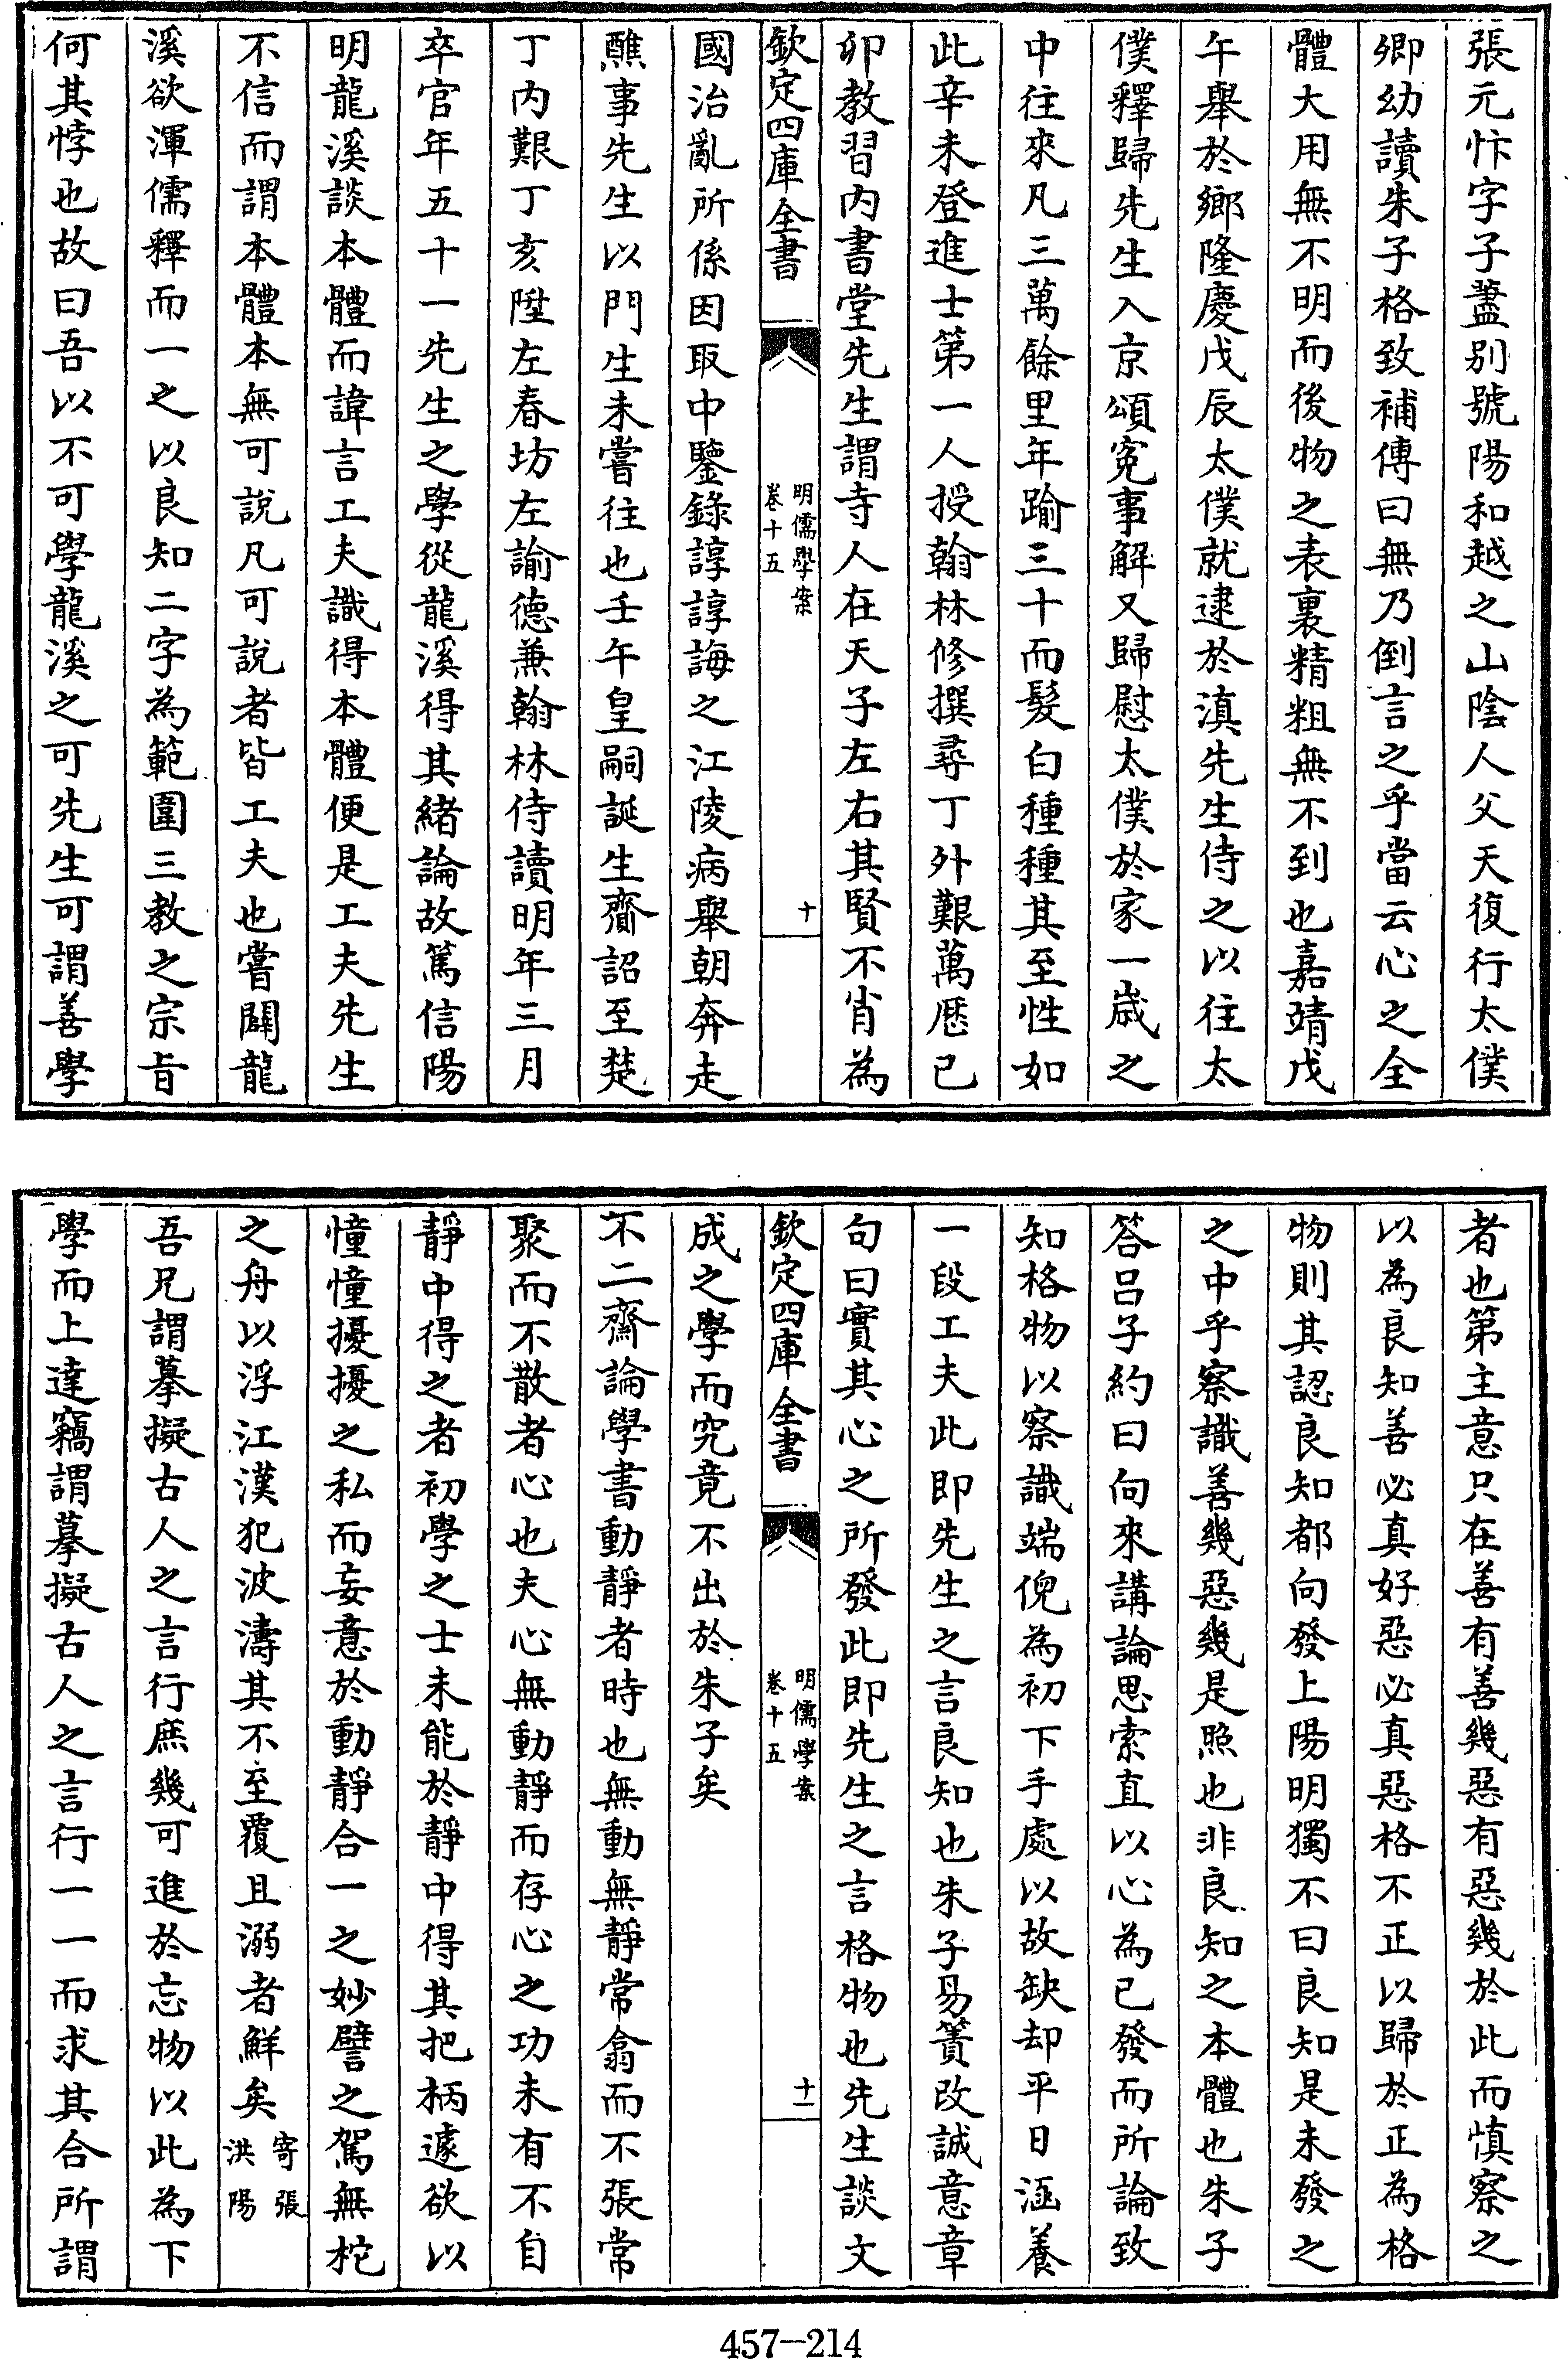 張元忭字子藎别號陽和越之山陰人父天復行太僕
卿幼讀朱子格致補傳曰無乃倒言之乎當云心之全
體大用無不明而後物之表裏精粗無不到也嘉靖戊
午舉於鄉隆慶戊辰太僕就逮於滇先生侍之以往太
僕釋歸先生入京頌寃事解又歸慰太僕於家一歲之
中往來凡三萬餘里年踰三十而髮白種種其至性如
此辛未登進士第一人授翰林修撰尋丁外艱萬厯己
卯教習内書堂先生謂寺人在天子左右其賢不肖為
欽定四庫全書
明儒學案
卷十五
十
國治亂所係因取中鑒錄諄諄誨之江陵病舉朝奔走
醮事先生以門生未嘗往也壬午皇嗣誕生齎詔至楚
丁内艱丁亥陞左春坊左諭德兼翰林侍讀明年三月
卒官年五十一先生之學從龍溪得其緒論故篤信陽
明龍溪談本體而諱言工夫識得本體便是工夫先生
不信而謂本體本無可說凡可說者皆工夫也嘗闢龍
溪欲渾儒釋而一之以良知二字為範圍三教之宗旨
何其悖也故曰吾以不可學龍溪之可先生可謂善學
者也第主意只在善有善幾惡有惡幾於此而慎察之
以為良知善必真好惡必真惡格不正以歸於正為格
物則其認良知都向發上陽明獨不曰良知是未發之
之中乎察識善幾惡幾是照也非良知之本體也朱子
答吕子約曰向來講論思索直以心為已發而所論致
知格物以察識端倪為初下手處以故缺却平日涵養
一段工夫此即先生之言良知也朱子易簀改誠意章
句曰實其心之所發此即先生之言格物也先生談文
欽定四庫全書
明儒學案
卷十五
十一
成之學而究竟不出於朱子矣
不二齋論學書動靜者時也無動無靜常翕而不張常
聚而不散者心也夫心無動靜而存心之功未有不自
靜中得之者初學之士未能於靜中得其把柄遽欲以
憧憧擾擾之私而妄意於動靜合一之妙譬之駕無柁
之舟以浮江漢犯波濤其不至覆且溺者鮮矣寄張洪陽
吾兄謂摹擬古人之言行庶幾可進於忘物以此為下
學而上達竊謂摹擬古人之言行一一而求其合所謂
457-214